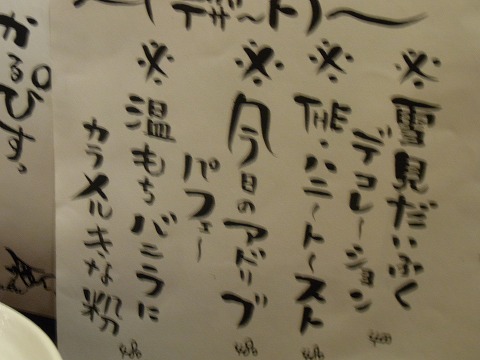 〜(デザート)〜
※雪見だいふく
デコレーション
※THE・ハニートースト
※今日のアドリブ
パフェー
※温もちバニラに
カラメルきな粉
かるぴすっ